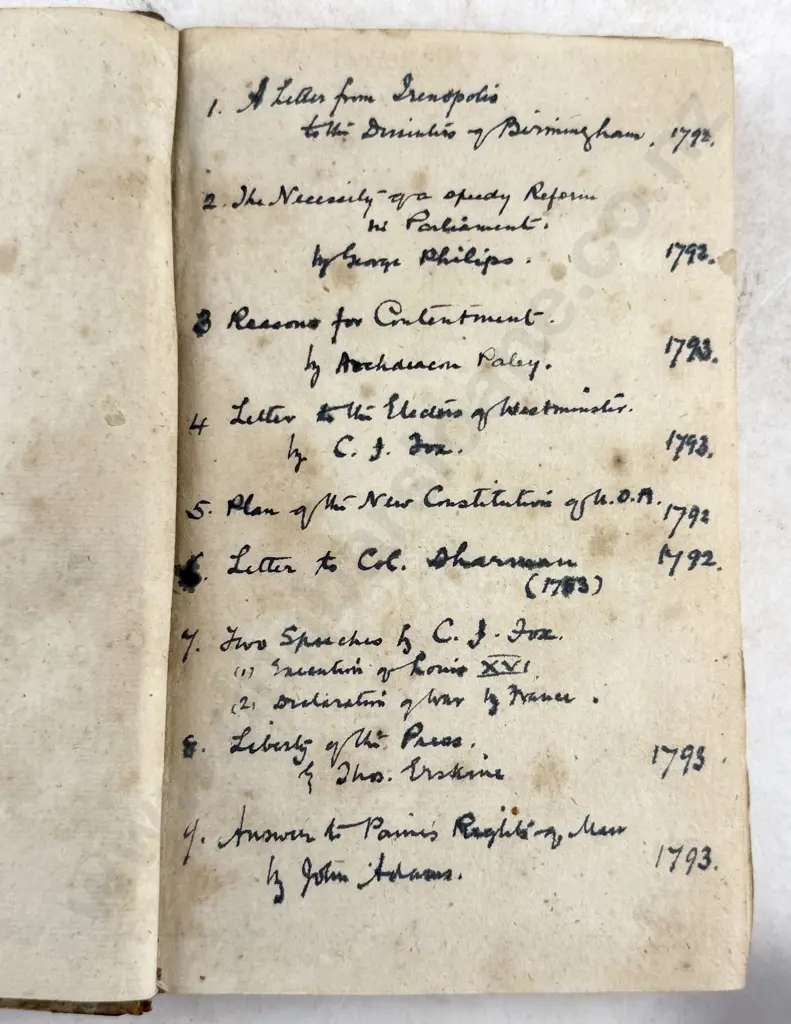 1. A Letter from Irenopolis
to the Dissenters of Birmingham. 1792.
2. The Necessity of a speedy Reform
in Parliament.
by George Philips. 1792.
3 Reasons for Contentment.
by Archdeacon Paley. 1793.
4 Letter to the Electors of Westminster.
by C. J. Fox. 1793.
5. Plan of the New Constitution of U.S.A. 1792
6. Letter to Col. Sharman 1792.
(1783)
7. Two Speeches by C. J. Fox.
(1) Execution of Louis XVI
(2) Declaration of War by France.
8. Liberty of the Press.
by Thos. Erskine 1793
9. Answer to Paine's Rights of Man
by John Adams. 1793.